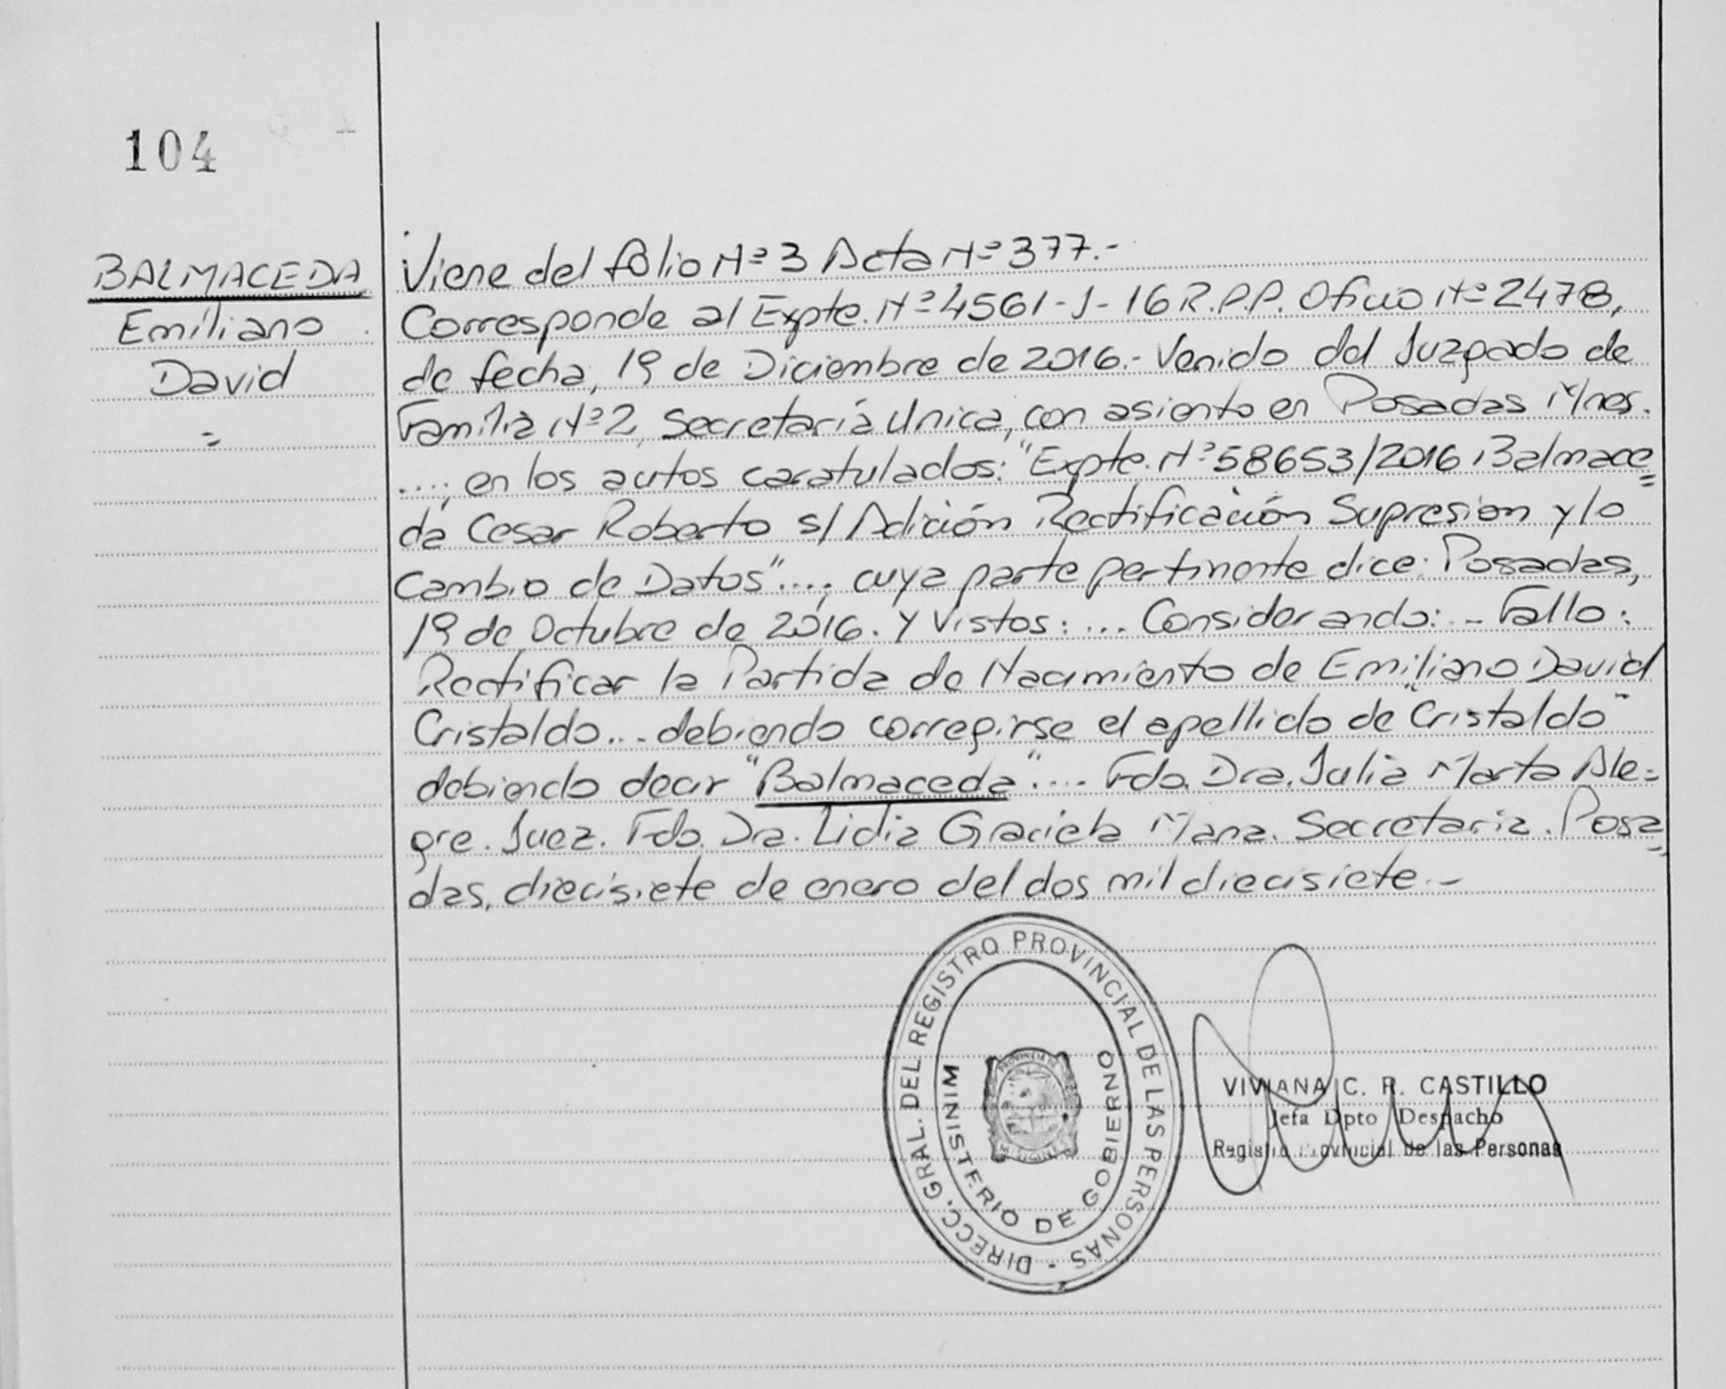 104
BALMACEDA
Emiliano
David
=
Viene del folio Nº 3 Acta Nº 377.-
Corresponde al Expte. Nº 4561-J-16 R.P.P. Oficio Nº 2478,
de fecha, 19 de Diciembre de 2016.- Venido del Juzgado de
Familia Nº 2, Secretaría Unica, con asiento en Posadas Mnes.
...., en los autos caratulados: "Expte. Nº 58653/2016 Balmace=
da Cesar Roberto s/ Adición Rectificación Supresion y/o
Cambio de Datos"...., cuya parte pertinente dice: Posadas,
19 de Octubre de 2016. Y Vistos: ... Considerando: - Fallo:
Rectificar la Partida de Nacimiento de Emiliano David
Cristaldo... debiendo corregirse el apellido de "Cristaldo"
debiendo decir "Balmaceda".... Fdo. Dra. Julia Marta Ale=
gre. Juez. Fdo. Dra. Lidia Graciela Secretaria. Posa=
das, diecisiete de enero del dos mil diecisiete.-
DIRECC. GRAL. DEL REGISTRO PROVINCIAL DE LAS PERSONAS -
MINISTERIO DE GOBIERNO
VIVIANA C. R. CASTILLO
Jefa Dpto Despacho
Registro Provincial de las Personas